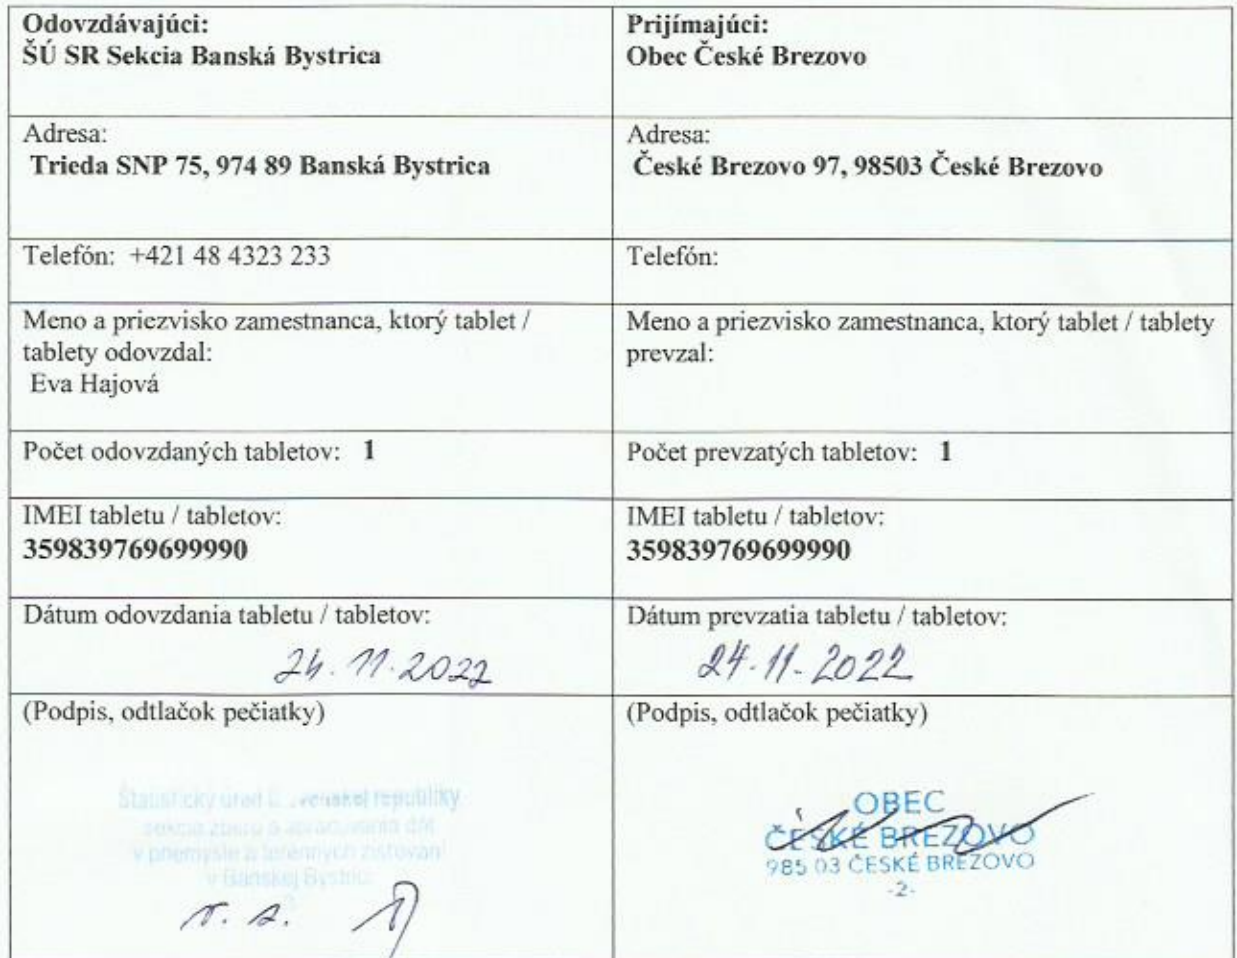 Odovzdávajúci:
ŠÚ SR Sekcia Banská Bystrica
Prijímajúci:
Obec České Brezovo
Adresa:
Trieda SNP 75, 974 89 Banská Bystrica
Adresa:
České Brezovo 97, 98503 České Brezovo
Telefón: +421 48 4323 233
Telefón:
Meno a priezvisko zamestnanca, ktorý tablet /
tablety odovzdal:
Eva Hajová
Meno a priezvisko zamestnanca, ktorý tablet / tablety
prevzal:
Počet odovzdaných tabletov: 1
Počet prevzatých tabletov: 1
IMEI tabletu / tabletov:
359839769699990
IMEI tabletu / tabletov:
359839769699990
Dátum odovzdania tabletu / tabletov:
24. 11. 2022
Dátum prevzatia tabletu / tabletov:
24. 11. 2022
(Podpis, odtlačok pečiatky)
Štatistický úrad Slovenskej republiky
sekcia zberu a spracovania dát
v priemysle a terénnych zisťovaní
v Banskej Bystrici
(Podpis, odtlačok pečiatky)
OBEC
ČESKÉ BREZOVO
985 03 ČESKÉ BREZOVO
-2-